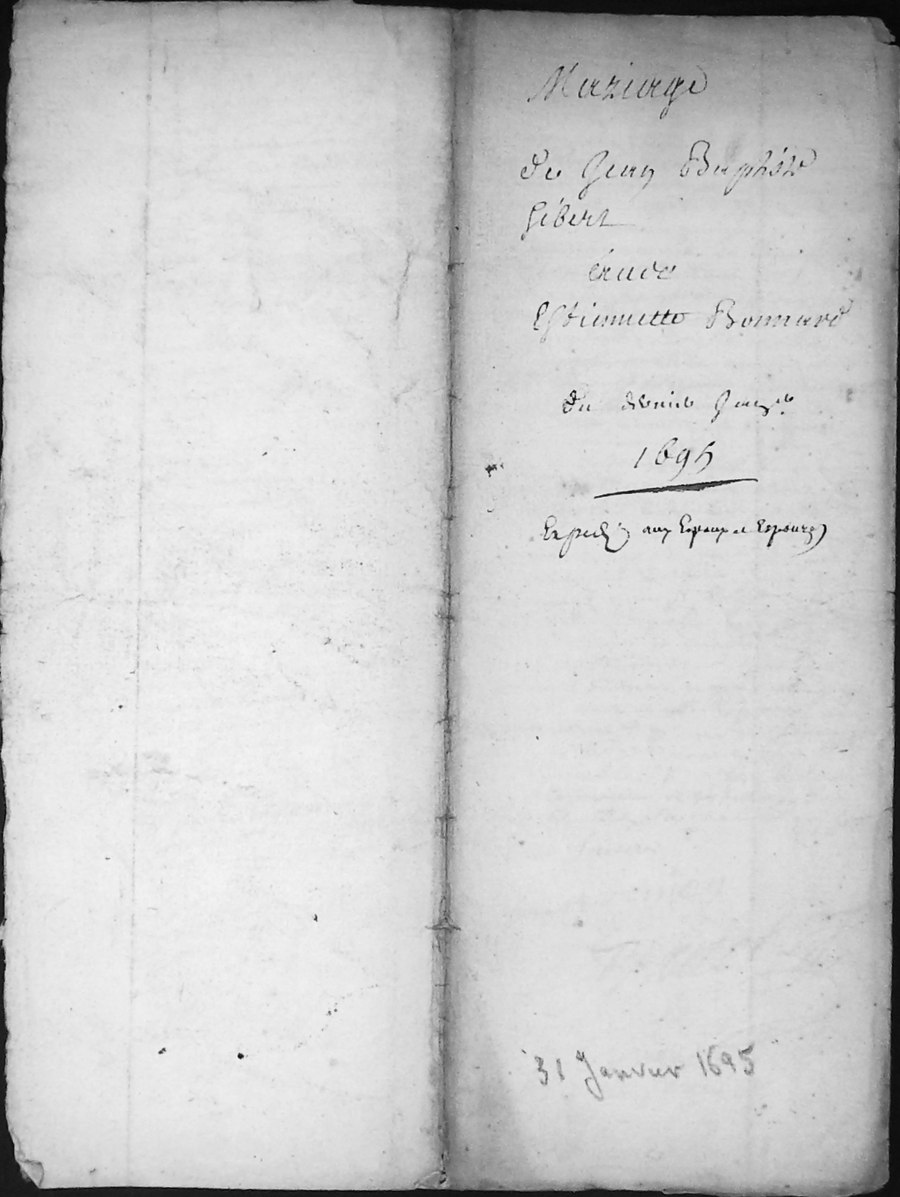 Mariage
de Jean Baptiste
Gibert
Estiennette Bonnard
du dernier Janv.er
1695
Expedié aux Espoux et Espouze
31 Janvier 1695